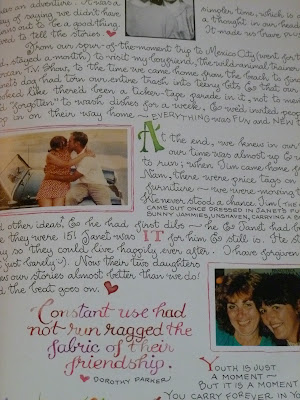 an adventure. It was a
of saying we didn't have
turns out to be a good thing,
to tell the stories
simpler time, which is
a thought in our
It made us have
From our spur-of-the-moment trip to Mexico City (went for
stayed a month) to visit my boyfriend, the wild-animal trainer
can TV show, to the time we came home from the beach to find
Janet's dog had torn our entire trash into teeny bits so that our
looked like there'd been a ticker-tape parade in it, not to
"forgotten" to wash dishes for a week, so well invited people
in on their way home — EVERYTHING was FUN and NEW
At the end, we knew in our
our time was almost up
to run; when Jim came home
Nam, there were price tags on
furniture — we were moving
He never stood a chance. Jim
CAME OUT ONCE DRESSED IN JANET'S
BUNNY JAMMIES, UNSHAVEN, CARRYING A
other ideas! So he had first dibs — he & Janet had
they were 15! Janet was IT for him & still is. He
so they could live happily ever after. I have forgiven
just barely). Now their two daughters
our stories almost better than we do!
the beat goes on.
Constant use had
not run ragged the
fabric of their
friendship.
DOROTHY PARKER
YOUTH IS JUST
A MOMENT —
BUT IT IS A MOMENT
YOU CARRY FOREVER IN